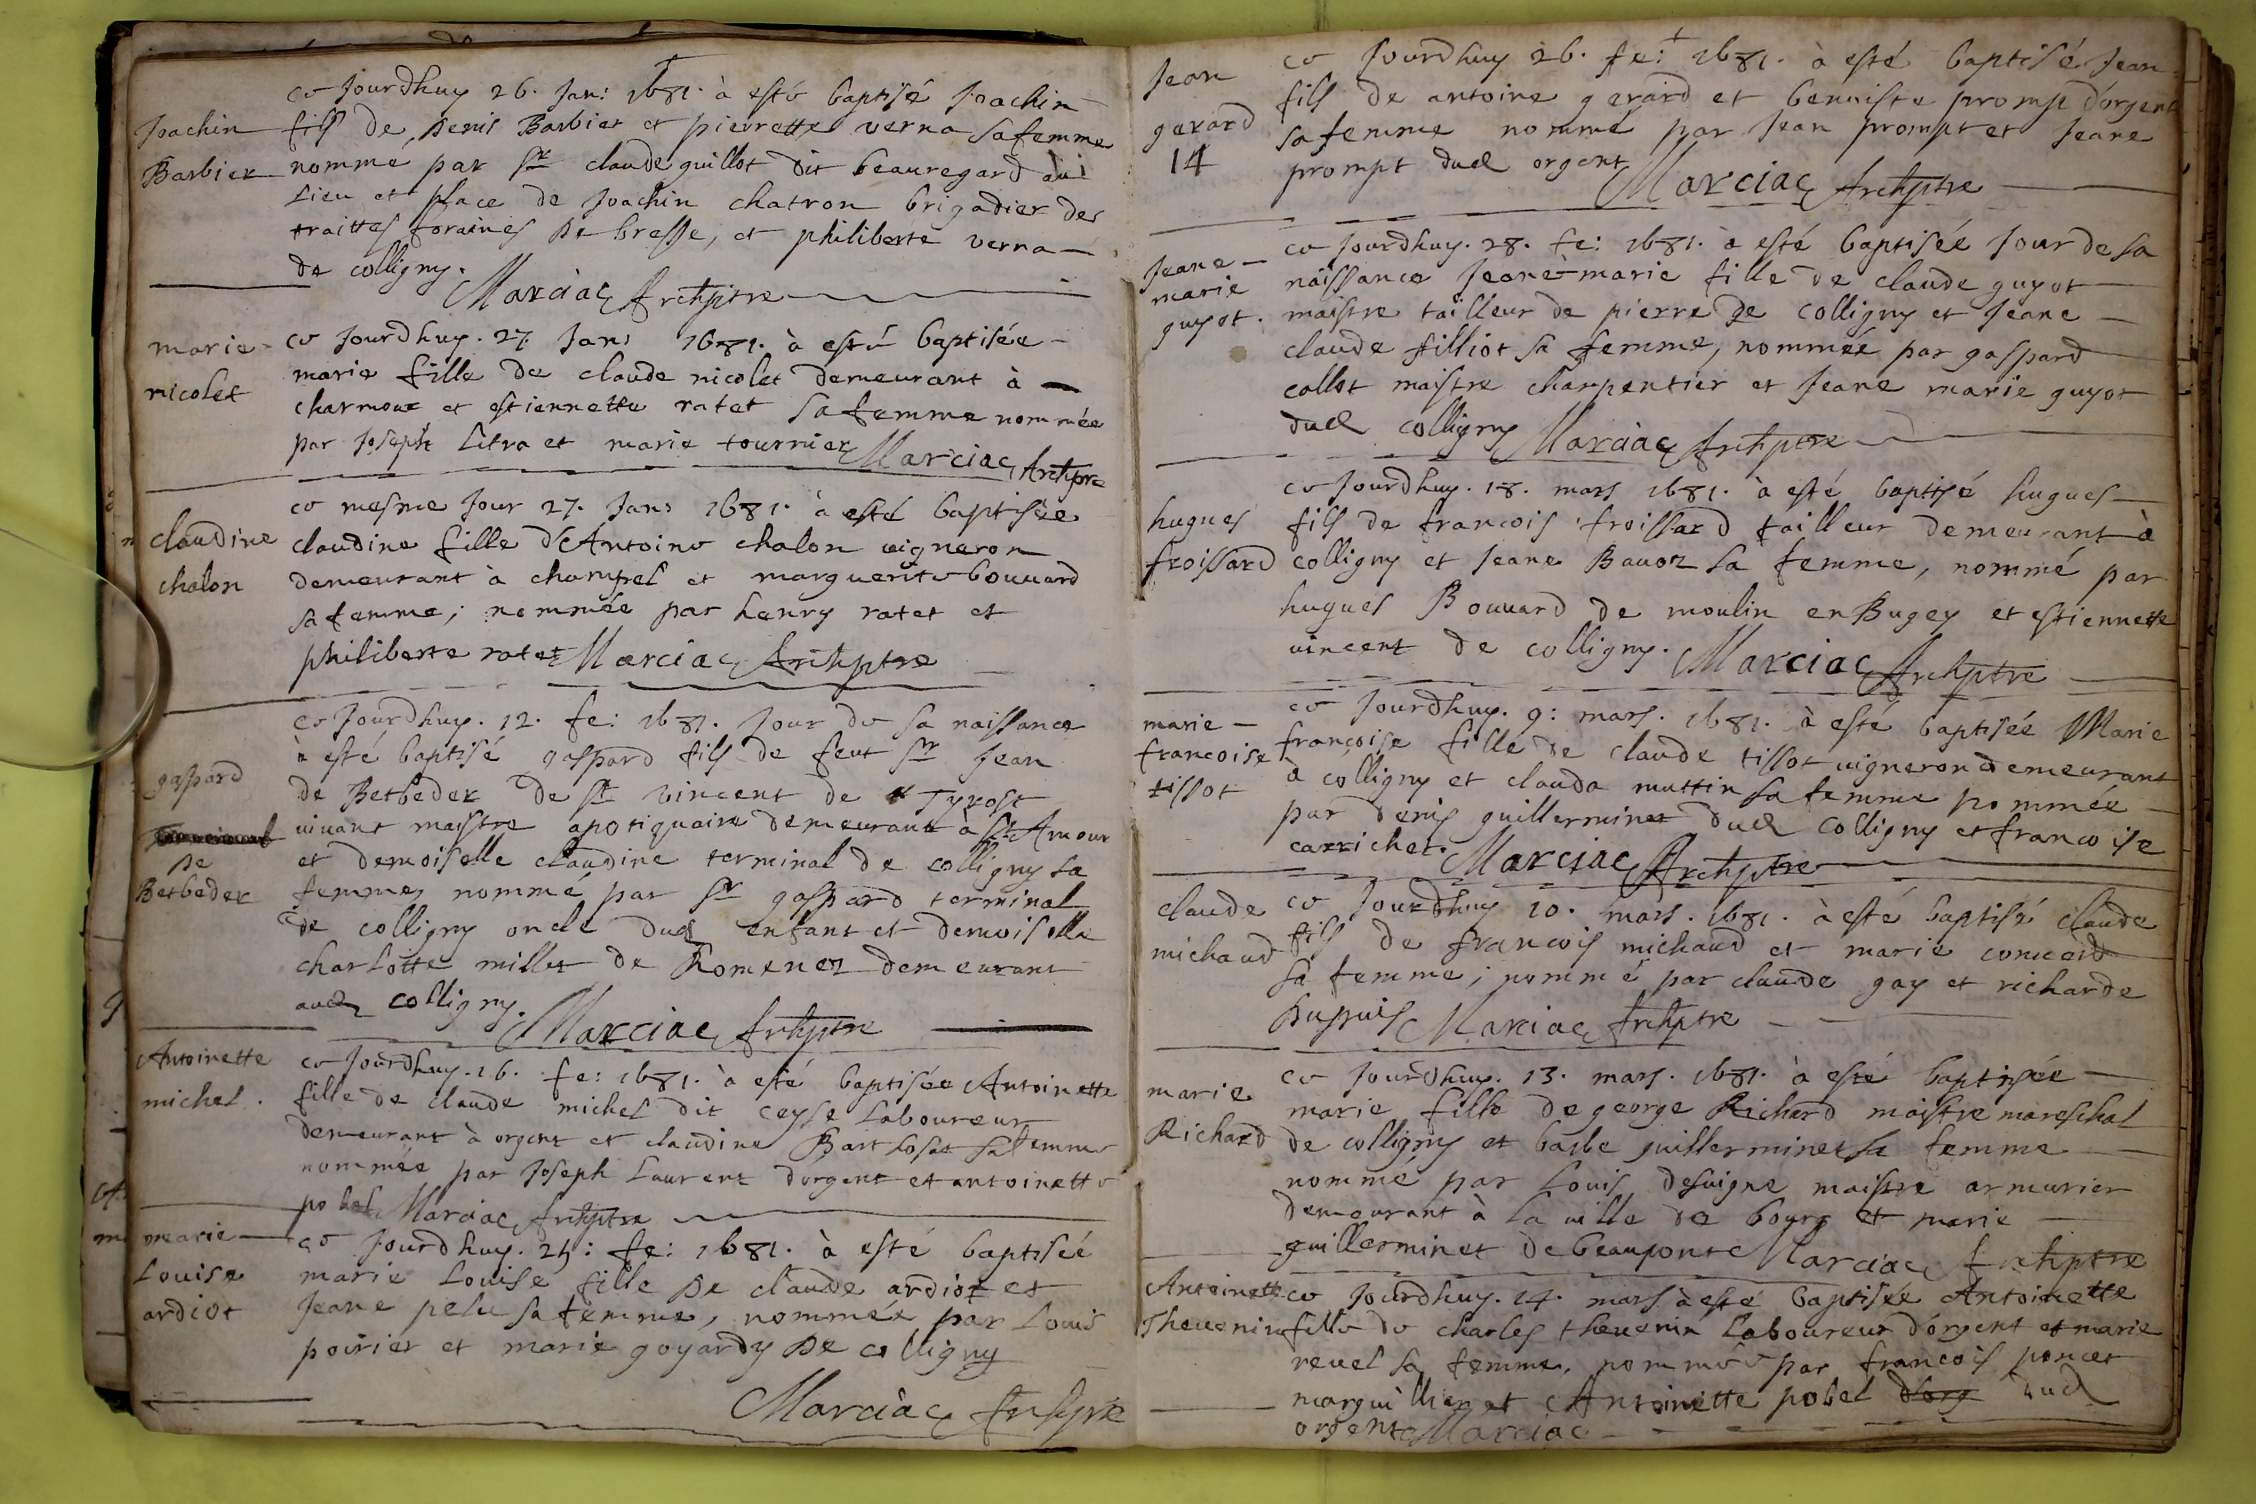 Joachin
Barbier
ce Jourdhuy 26. Jan: 1681. à esté baptisé Joachin
fils de Denis Barbier et pierrette verna sa femme
nommé par Sr claude guillot dit beauregard au
Lieu et place de Joachin chatron brigadier des
traittes foraines De bresse, et philiberte verna
de colligny. Marciac Archiptre
marie
nicolet
ce Jourdhuy. 27. Jan: 1681. à esté baptisée
marie fille de claude nicolet demeurant à
charmoux et estiennette ratet sa femme nommée
par Joseph Litra et marie tournier Marciac Archptre
claudine
chalon
ce mesme Jour 27. Jan: 1681. à esté baptisée
claudine fille d'Antoine chalon uigneron
demeurant à champel et marguerite bouuard
sa femme; nommée par henry ratet et
philiberte ratet Marciac Archptre
gaspard
De
Betbeder
ce Jourdhuy. 12. fe: 1681. Jour de sa naissance
à esté baptisé gaspard fils de feut Sr Jean
de Betbeder De St vincent de Tyrost
uiuant maistre apotiquaire demeurant à St Amour
et demoiselle claudine terminal de colligny sa
femme, nommé par Sr gaspard terminal
de colligny oncle dud enfant et demoiselle
charLotte millet de Romenez demeurant
aud colligny. Marciac Archptre
Antoinette
michel.
ce Jourdhuy. 16. fe: 1681. à esté baptisée Antoinette
fille de claude michel dit ceyse Laboureur
demeurant à orgent et claudine Bart Losat sa femme
nommée par Joseph Laurent dorgent et antoinette
pobel Marciac Archptre
marie
Louise
ardiot
ce Jourdhuy. 25: fe: 1681. à esté baptisée
marie Louise fille De claude ardiot et
Jeane pelu sa femme, nommée par Louis
poirier et marie goyardy De colligny
Marciac Archptre
Jean
gerard
14
ce Jourdhuy 26. fe: 1681. à esté baptisé Jean
fils de antoine gerard et benoiste prompt d'orgent
sa femme nommé par Jean prompt et Jeane
prompt dud orgent Marciac Archptre
Jeane
marie
guyot.
ce Jourdhuy. 28. fe: 1681. à esté baptisée Jour de sa
naissance Jeane-marie fille de claude guyot
maistre tailleur de pierre de colligny et Jeane
claude filliot sa femme, nommée par gaspard
collot maistre charpentier et Jeane marie guyot
dud colligny Marciac Archptre
hugues
froissard
ce Jourdhuy. 18. mars 1681. à esté baptisé hugues
fils de francois froissard tailleur demeurant à
colligny et Jeane Bauoz sa femme, nommé par
hugues Bouuard de moulin en Bugey et estiennette
uincent de colligny. Marciac Archptre
marie
francoise
tissot
ce Jourdhuy. 9: mars. 1681. à esté baptisée Marie
françoise fille de claude tissot uigneron demeurant
à colligny et clauda muttin sa femme nommée
par denis guillerminet dud colligny et francoise
carrichet. Marciac Archptre
claude
michaud
ce Jourdhuy 10. mars. 1681. à esté baptisé claude
fils de francois michaud et marie conuerd
sa femme; nommé par claude gay et richarde
Dupuis Marciac Archptre
marie
Richard
ce Jourdhuy. 13. mars. 1681. à esté baptisée
marie fille de george Richard maistre mareschal
de colligny et barbe guillerminet sa femme
nommé par Louis desuigne maistre armurier
demeurant à La uille de bourg et marie
guillerminet de beaupont Marciac Archptre
Antoinette
Theuenin
ce Jourdhuy. 14. mars à esté baptisée Antoinette
fille de charles theuenin Laboureur d'orgent et marie
reuel sa femme, nommée par francois poncet
marguillier et Antoinette pobel d'org dud
orgent Marciac